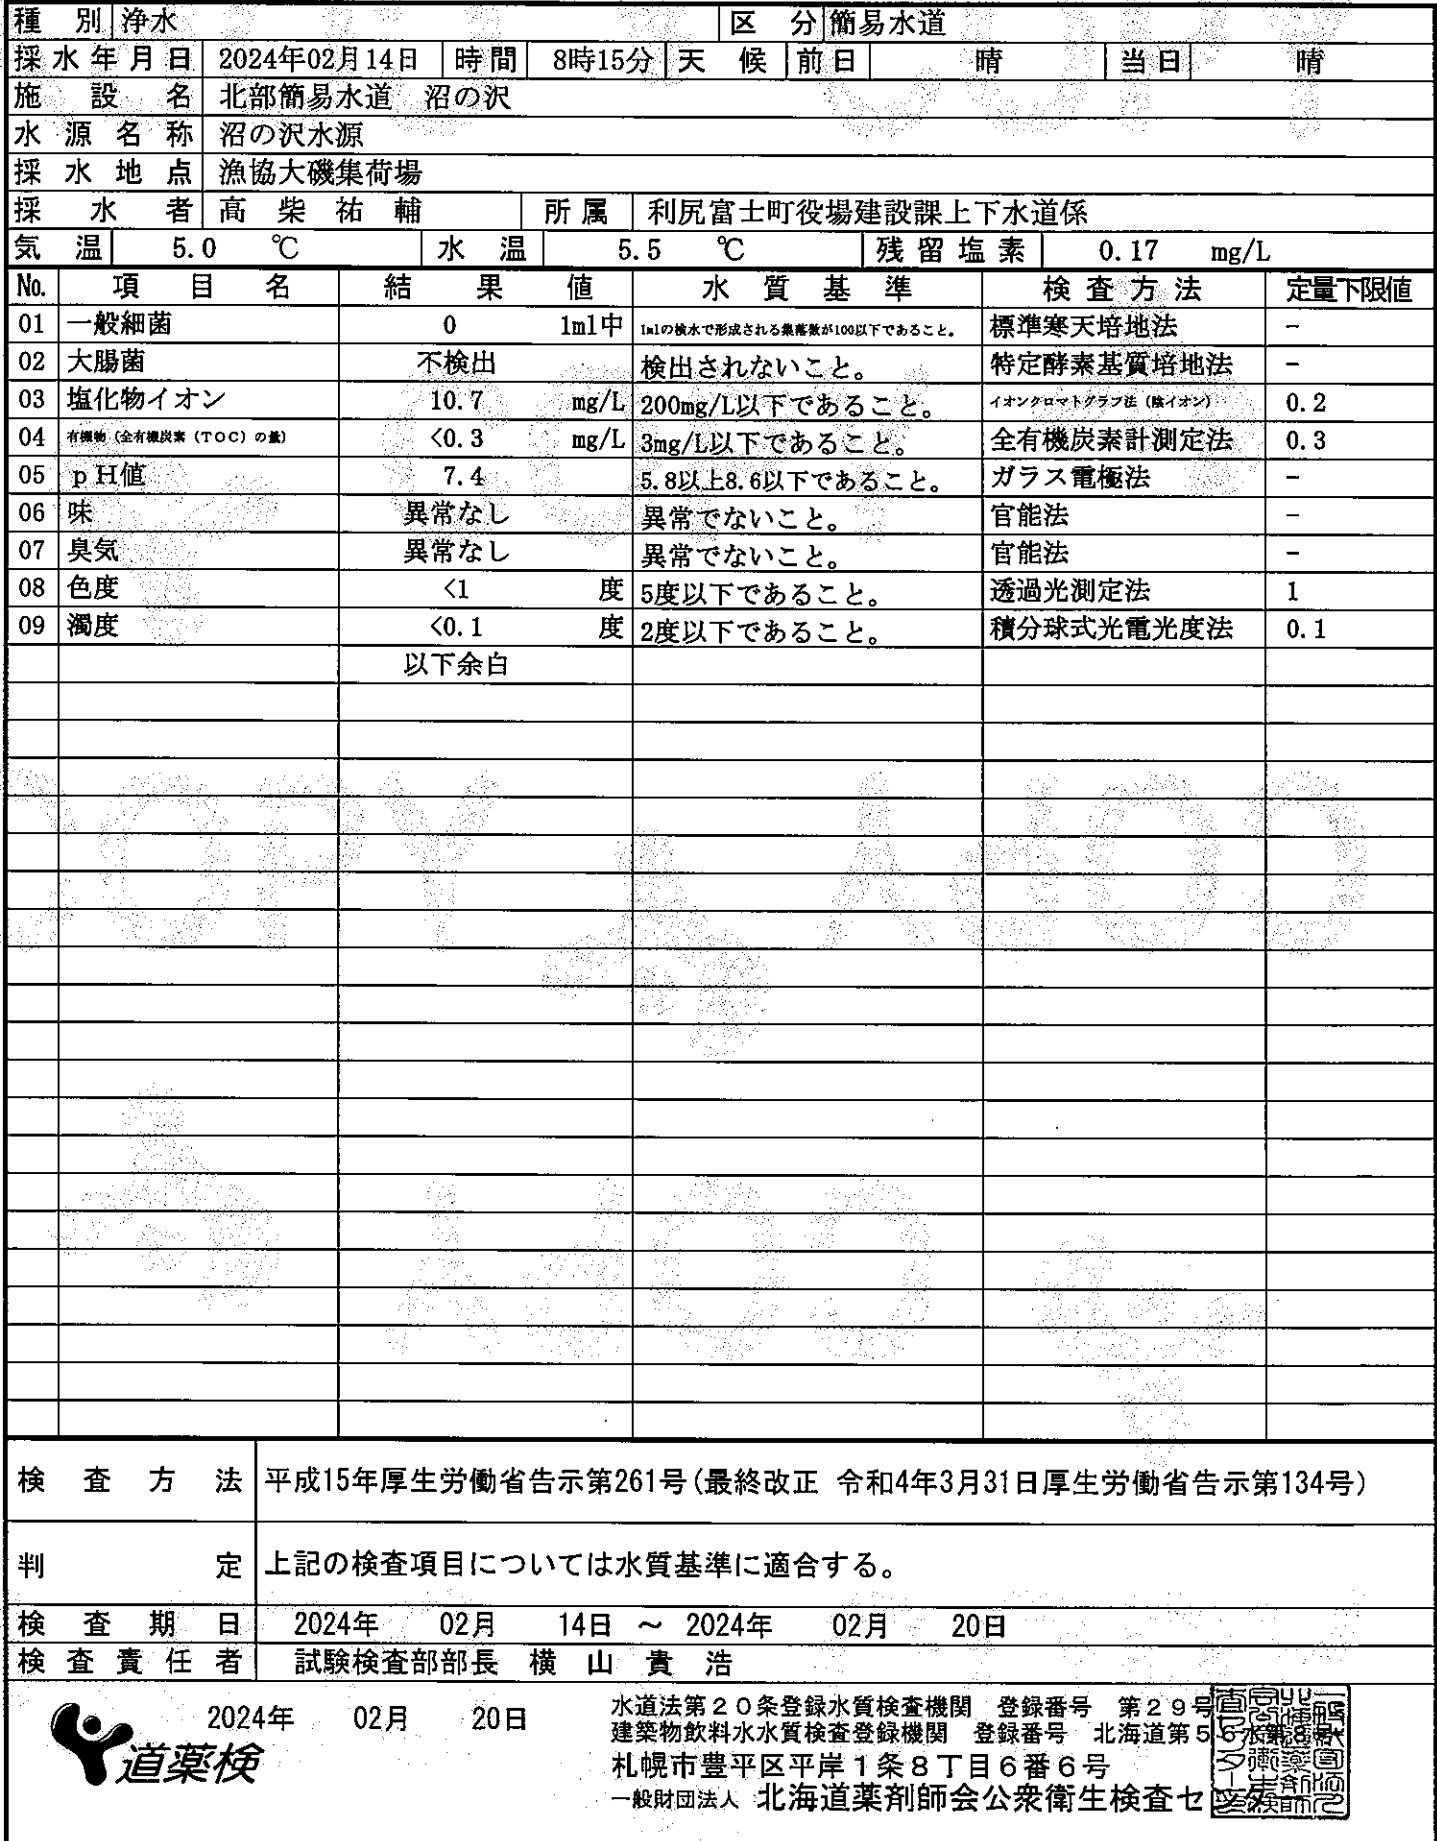 種別 浄水 区分 簡易水道
採水年月日 2024年02月14日 時間 8時15分 天候 前日 晴 当日 晴
施設名 北部簡易水道 沼の沢
水源名称 沼の沢水源
採水地点 漁協大磯集荷場
採水者 高柴祐輔 所属 利尻富士町役場建設課上下水道係
気温 5.0 ℃ 水温 5.5 ℃ 残留塩素 0.17 mg/L
No. 項目名 結果値 水質基準 検査方法 定量下限値
01 一般細菌 0 1ml中 1mlの検水で形成される集落数が100以下であること。 標準寒天培地法 −
02 大腸菌 不検出 検出されないこと。 特定酵素基質培地法 −
03 塩化物イオン 10.7 mg/L 200mg/L以下であること。 イオンクロマトグラフ法（陰イオン） 0.2
04 有機物（全有機炭素（TOC）の量） <0.3 mg/L 3mg/L以下であること。 全有機炭素計測定法 0.3
05 pH値 7.4 5.8以上8.6以下であること。 ガラス電極法 −
06 味 異常なし 異常でないこと。 官能法 −
07 臭気 異常なし 異常でないこと。 官能法 −
08 色度 <1 度 5度以下であること。 透過光測定法 1
09 濁度 <0.1 度 2度以下であること。 積分球式光電光度法 0.1
以下余白
検査方法 平成15年厚生労働省告示第261号(最終改正 令和4年3月31日厚生労働省告示第134号)
判定 上記の検査項目については水質基準に適合する。
検査期日 2024年 02月 14日 ～ 2024年 02月 20日
検査責任者 試験検査部部長 横山貴浩
道薬検 2024年 02月 20日
水道法第20条登録水質検査機関 登録番号 第29号
建築物飲料水水質検査登録機関 登録番号 北海道第56水第8号
札幌市豊平区平岸1条8丁目6番6号
一般財団法人 北海道薬剤師会公衆衛生検査センター